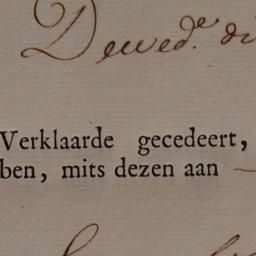 De wed.e di
Verklaarde gecedeert,
ben, mits dezen aan